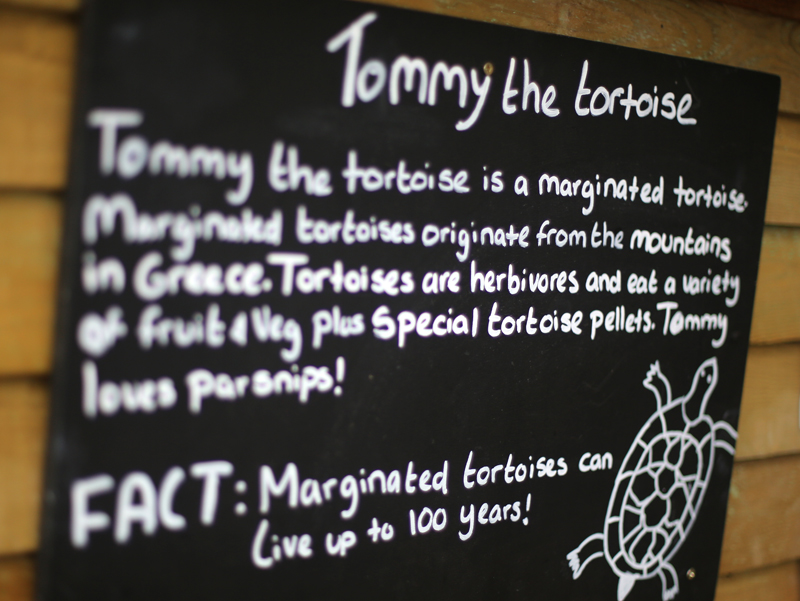 Tommy the tortoise
Tommy the tortoise is a marginated tortoise.
Marginated tortoises originate from the mountains
in Greece. Tortoises are herbivores and eat a variety
of fruit & Veg plus Special tortoise pellets. Tommy
loves parsnips!
FACT: Marginated tortoises can
Live up to 100 years!